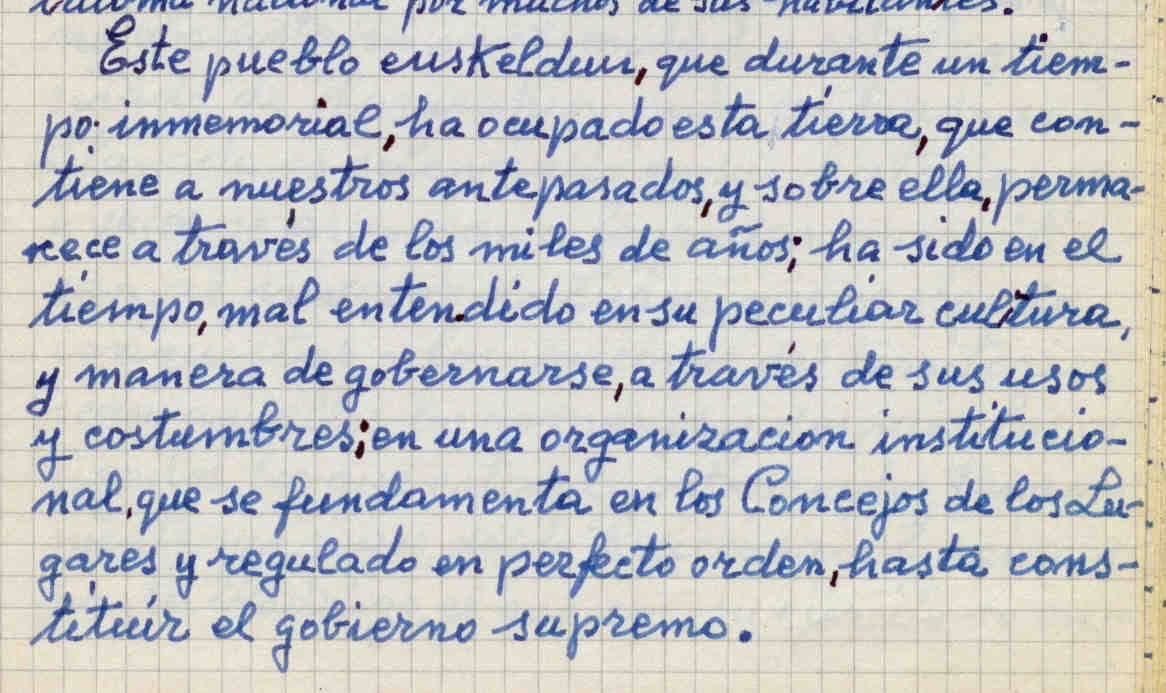 idioma nacional por muchos de sus habitantes.
Este pueblo euskeldun, que durante un tiem-
po inmemorial, ha ocupado esta tierra, que con-
tiene a nuestros antepasados, y sobre ella, perma-
nece a través de los miles de años; ha sido en el
tiempo, mal entendido en su peculiar cultura,
y manera de gobernarse, a través de sus usos
y costumbres; en una organizacion institucio-
nal, que se fundamenta en los Concejos de los Lu-
gares y regulado en perfecto orden, hasta cons-
tituir el gobierno supremo.